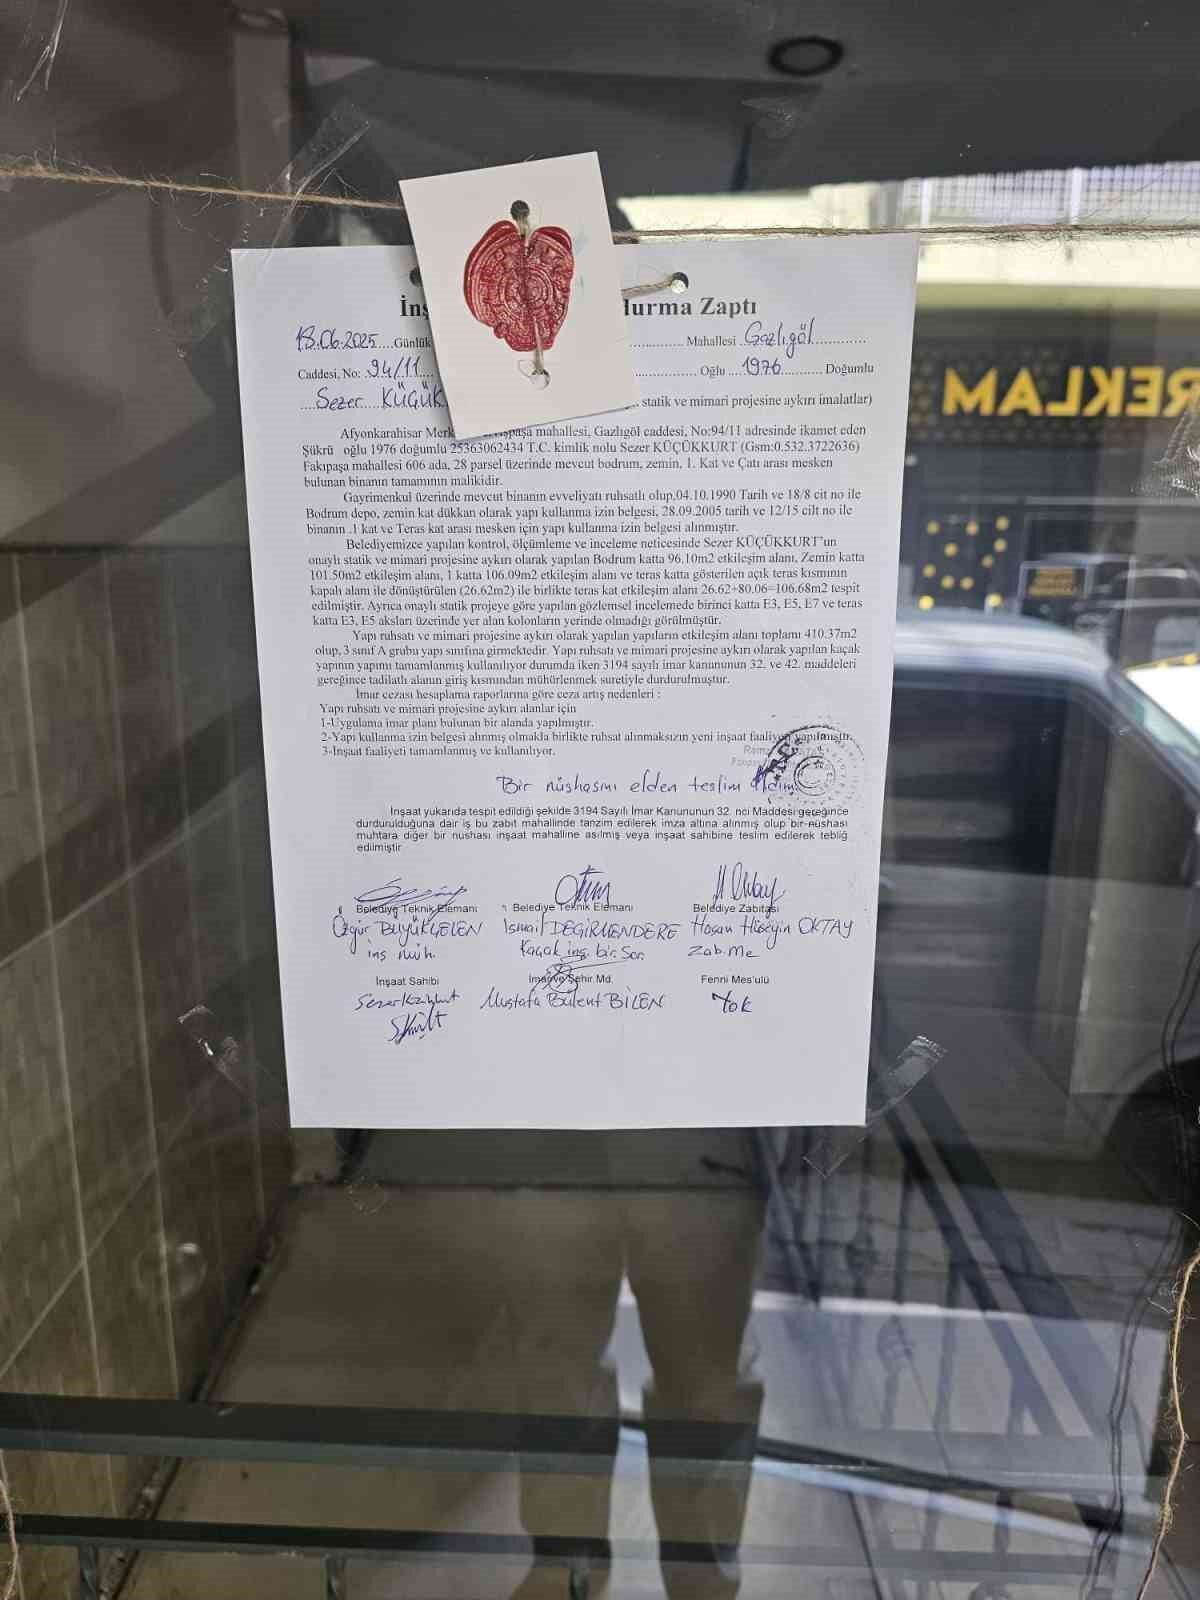 İnş durma Zaptı
18.06.2025 Günlük Mahallesi Gazlıgöl
Caddesi, No: 94/11 Oğlu 1976 Doğumlu
Sezer KÜÇÜK statik ve mimari projesine aykırı imalatlar)
Afyonkarahisar Merk mahallesi, Gazlıgöl caddesi, No:94/11 adresinde ikamet eden
Şükrü oğlu 1976 doğumlu 25363062434 T.C. kimlik nolu Sezer KÜÇÜKKURT (Gsm:0.532.3722636)
Fakıpaşa mahallesi 606 ada, 28 parsel üzerinde mevcut bodrum, zemin, 1. Kat ve Çatı arası mesken
bulunan binanın tamamının malikidir.
Gayrimenkul üzerinde mevcut binanın evveliyatı ruhsatlı olup,04.10.1990 Tarih ve 18/8 cit no ile
Bodrum depo, zemin kat dükkan olarak yapı kullanma izin belgesi, 28.09.2005 tarih ve 12/15 cilt no ile
binanın .1 kat ve Teras kat arası mesken için yapı kullanma izin belgesi alınmıştır.
Belediyemizce yapılan kontrol, ölçümleme ve inceleme neticesinde Sezer KÜÇÜKKURT'un
onaylı statik ve mimari projesine aykırı olarak yapılan Bodrum katta 96.10m2 etkileşim alanı, Zemin katta
101.50m2 etkileşim alanı, 1 katta 106.09m2 etkileşim alanı ve teras katta gösterilen açık teras kısmının
kapalı alanı ile dönüştürülen (26.62m2) ile birlikte teras kat etkileşim alanı 26.62+80.06=106.68m2 tespit
edilmiştir. Ayrıca onaylı statik projeye göre yapılan gözlemsel incelemede birinci katta E3, E5, E7 ve teras
katta E3, E5 aksları üzerinde yer alan kolonların yerinde olmadığı görülmüştür.
Yapı ruhsatı ve mimari projesine aykırı olarak yapılan yapıların etkileşim alanı toplamı 410.37m2
olup, 3 sınıf A grubu yapı sınıfına girmektedir. Yapı ruhsatı ve mimari projesine aykırı olarak yapılan kaçak
yapının yapımı tamamlanmış kullanılıyor durumda iken 3194 sayılı imar kananunun 32. ve 42. maddeleri
gereğince tadilatlı alanın giriş kısmından mühürlenmek suretiyle durdurulmuştur.
İmar cezası hesaplama raporlarına göre ceza artış nedenleri :
Yapı ruhsatı ve mimari projesine aykırı alanlar için
1-Uygulama imar planı bulunan bir alanda yapılmıştır.
2-Yapı kullanma izin belgesi alınmış olmakla birlikte ruhsat alınmaksızın yeni inşaat faaliyeti yapılmıştır.
3-İnşaat faaliyeti tamamlanmış ve kullanılıyor.
Bir nüshasını elden teslim aldım
İnşaat yukarıda tespit edildiği şekilde 3194 Sayılı İmar Kanununun 32. nci Maddesi gereğince
durdurulduğuna dair iş bu zabıt mahallinde tanzim edilerek imza altına alınmış olup bir nüshası
muhtara diğer bir nüshası inşaat mahalline asılmış veya inşaat sahibine teslim edilerek tebliğ
edilmiştir
Belediye Teknik Elemanı Belediye Teknik Elemanı Belediye Zabıtası
Özgür BÜYÜKGELEN İsmail DEĞİRMENDERE Hasan Hüseyin OKTAY
İnş Müh. Kaçak inş. bir. Sor. Zab.Me
İnşaat Sahibi İmar ve Şehir Md. Fenni Mes'ulü
Mustafa Bülent BİLEN Yok
REKLAM